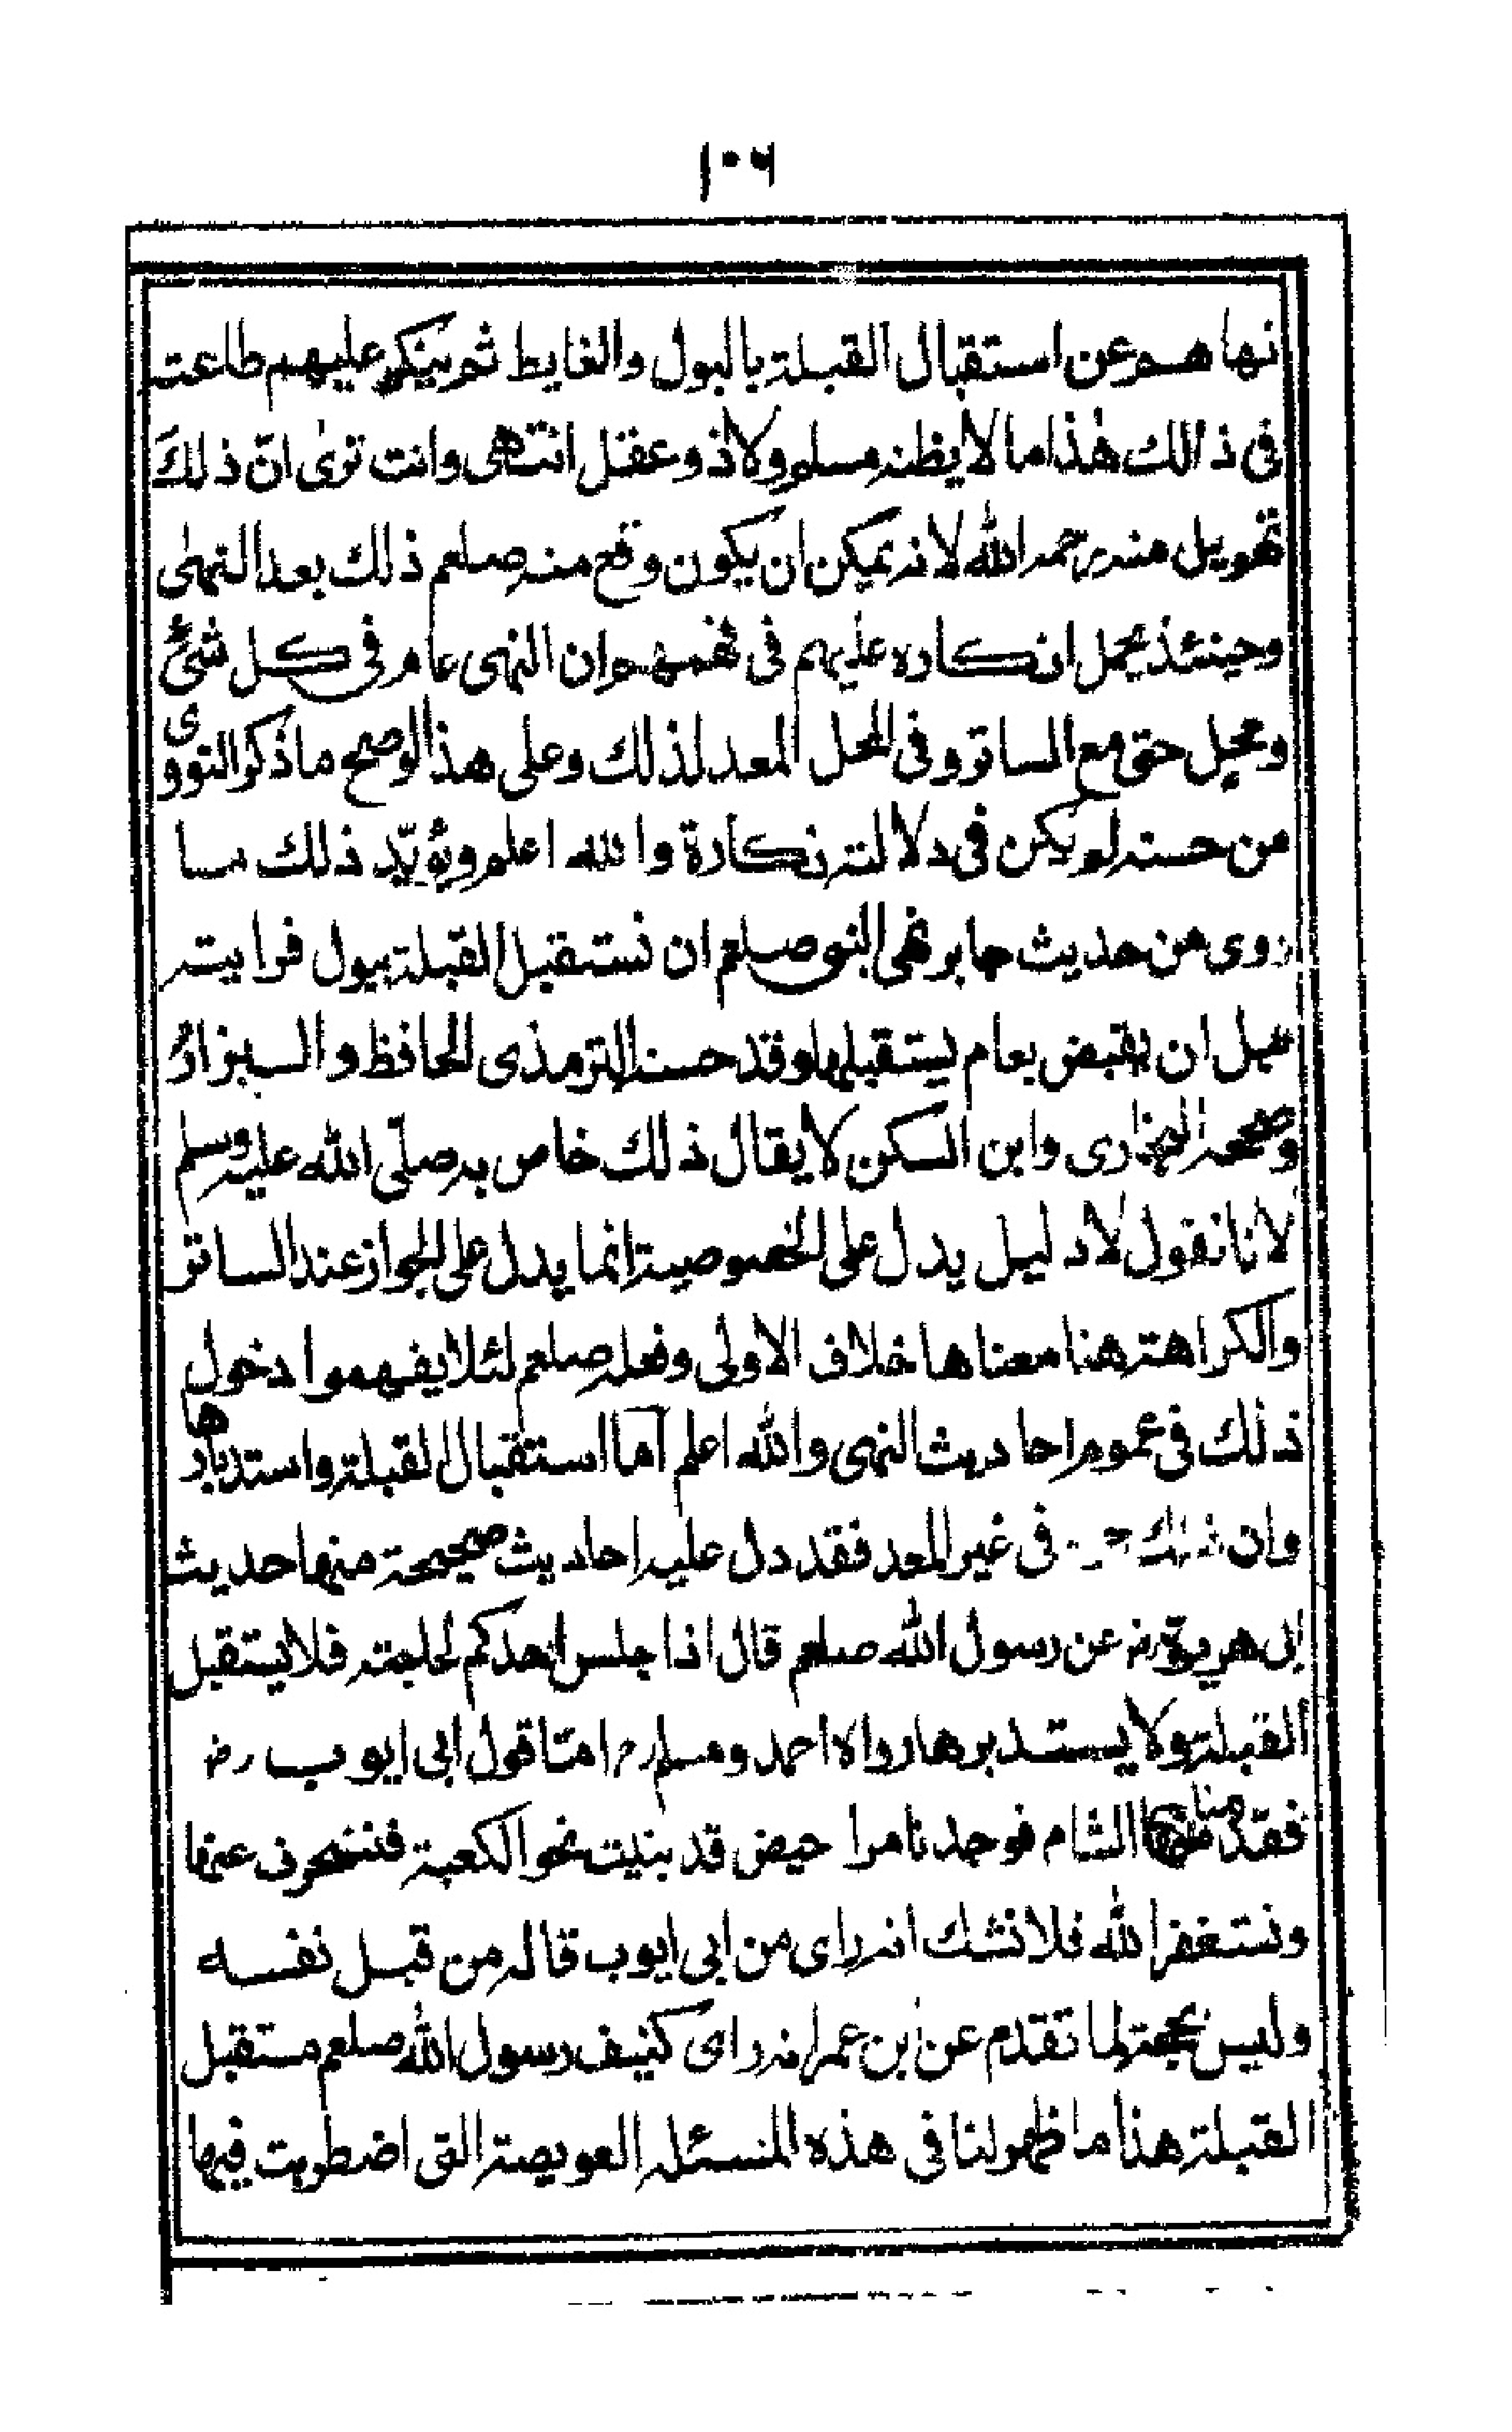 ١٠٦
نهاهم عن استقبال القبلة بالبول والغايط ثم ينكر عليهم طاعته
فى ذالك هٰذا ما لا يظنه مسلم ولا ذو عقل انتهى وانت ترىٰ انّ ذلكَ
تهويل منه رحمه الله لانه يمكن ان يكون وقع منه صلعم ذلك بعد النهى
وحينئذ يحمل انكاره عليهم فى فهمهم ان النهى عام فى كل شئ
ومحل حتى مع الساتر وفى المحل المعد لذلك وعلى هذا لو صح ما ذكر النووى
من حسنه لم يكن فى دلالته نكارة والله اعلم ويؤيّد ذلك ما
روى من حديث جابر نهى النبى صلعم ان نستقبل القبلة ببول فرايته
قبل ان يقبض بعام يستقبلها وقد حسنه الترمذى الحافظ والبزار
وصححه البخارى وابن السكن لا يقال ذلك خاص به صلّى الله عليه وسلم
لانا نقول لا دليل يدل على الخصوصية انما يدل على الجواز عند الساتر
والكراهة هنا معناها خلاف الاولى وفعله صلعم لئلا يفهموا دخول
ذلك فى عموم احاديث النهى والله اعلم اما استقبال القبلة واستدبارها
وان ذلك فى غير المعد فقد دل عليه احاديث صحيحة منها حديث
ابى هريرة رض عن رسول الله صلعم قال اذا جلس احدكم لحاجته فلا يستقبل
القبلة ولا يستدبرها رواه احمد ومسلم رح امّا قول ابى ايوب رض
فقدمنا الشام فوجدنا مراحيض قد بنيت نحو الكعبة فننحرف عنها
ونستغفر الله فلا نشك انه راى من ابى ايوب قاله من قبل نفسه
وليس بحجة لما تقدم عن ابن عمر انه راى كنيف رسول الله صلعم مستقبل
القبلة هذا ما ظهر لنا فى هذه المسئله العويصة التى اضطربت فيها